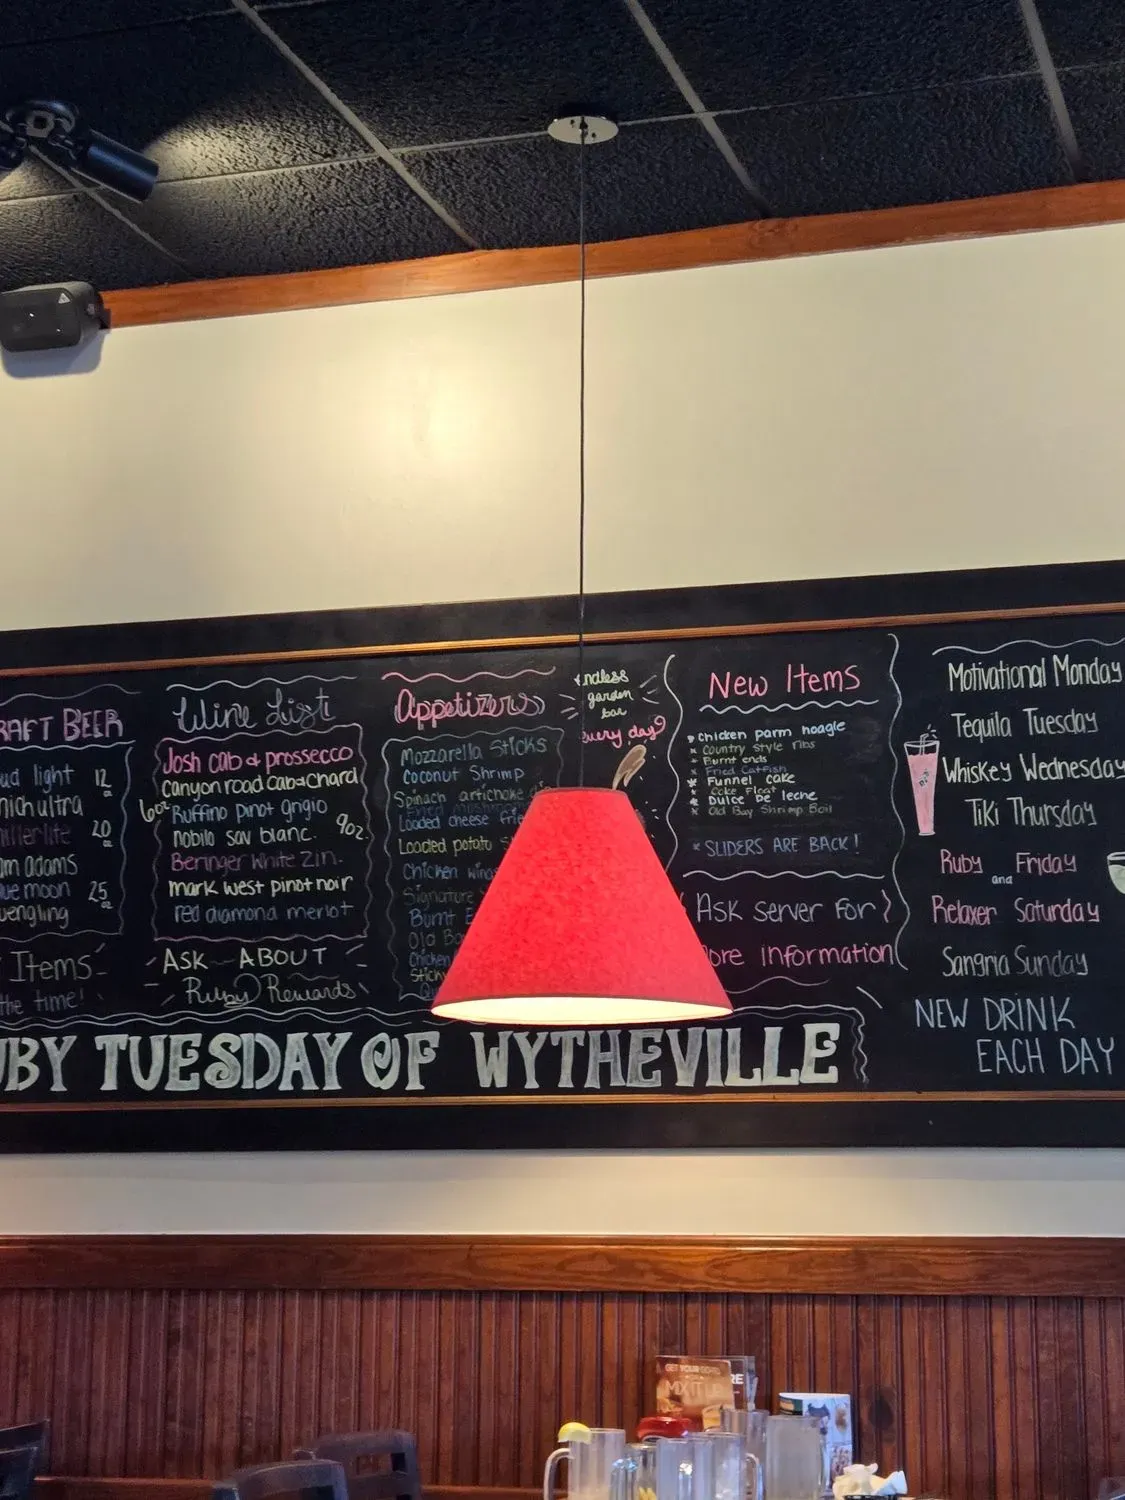 RAFT BEER
ud light 12 oz
mich ultra
miller lite 20 oz
am adams
ue moon 25 oz
uengling
Items
the time!
Wine List
Josh cab & prossecco
canyon road cab & chard
6oz Ruffino pinot grigio
nobilo sav blanc. 9oz.
Beringer white zin.
mark west pinot noir
red diamond merlot
ASK ABOUT
Ruby Rewards
Appetizers
Mozzarella Sticks
Coconut Shrimp
Spinach artichoke di
Fried mushrooms
Loaded cheese frie
Loaded potato
Chicken wings
Signature
Burnt E
Old Ba
Chicken
Sticky
endless
garden
bar
every day?
New Items
* chicken parm hoagie
* Country style ribs
* Burnt ends
* Fried Catfish
* Funnel cake
* Coke Float
* Dulce De leche
* Old Bay Shrimp Boil
* SLIDERS ARE BACK!
Ask server for
ore information
Motivational Monday
Tequila Tuesday
Whiskey Wednesday
Tiki Thursday
Ruby Friday
and
Relaxer Saturday
Sangria Sunday
NEW DRINK
EACH DAY
UBY TUESDAY OF WYTHEVILLE
GET YOUR
MIX IT UP
RE